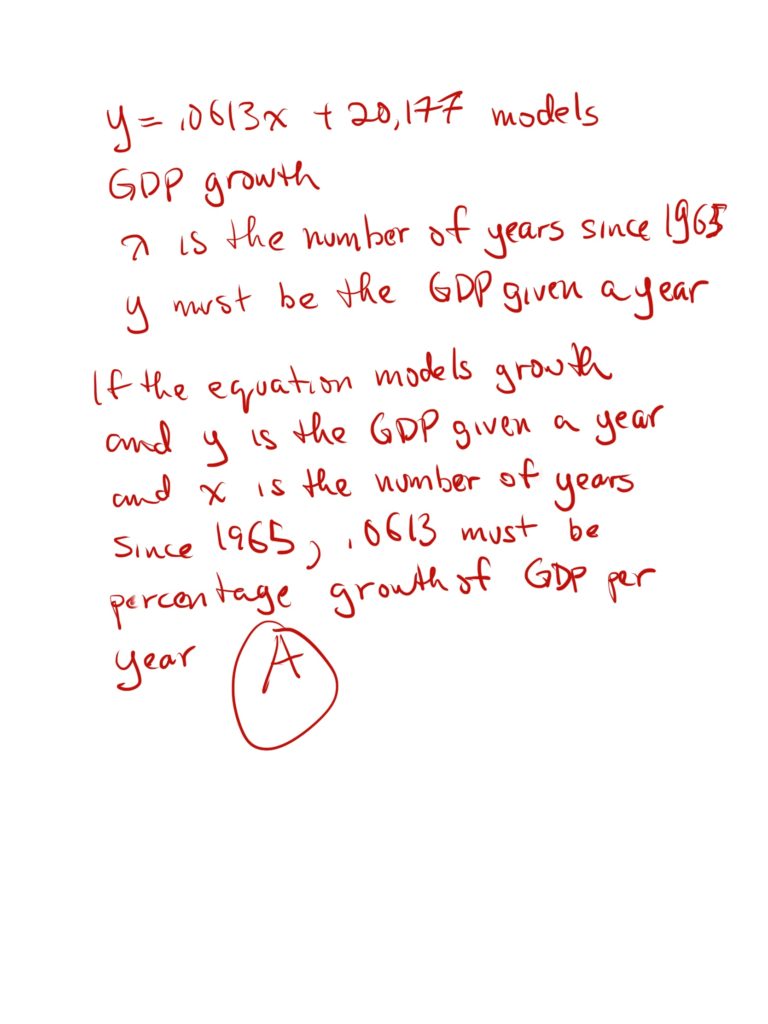 y = .0613x + 20,177 models
GDP growth
x is the number of years since 1965
y must be the GDP given a year
If the equation models growth
and y is the GDP given a year
and x is the number of years
since 1965, .0613 must be
percentage growth of GDP per
year A